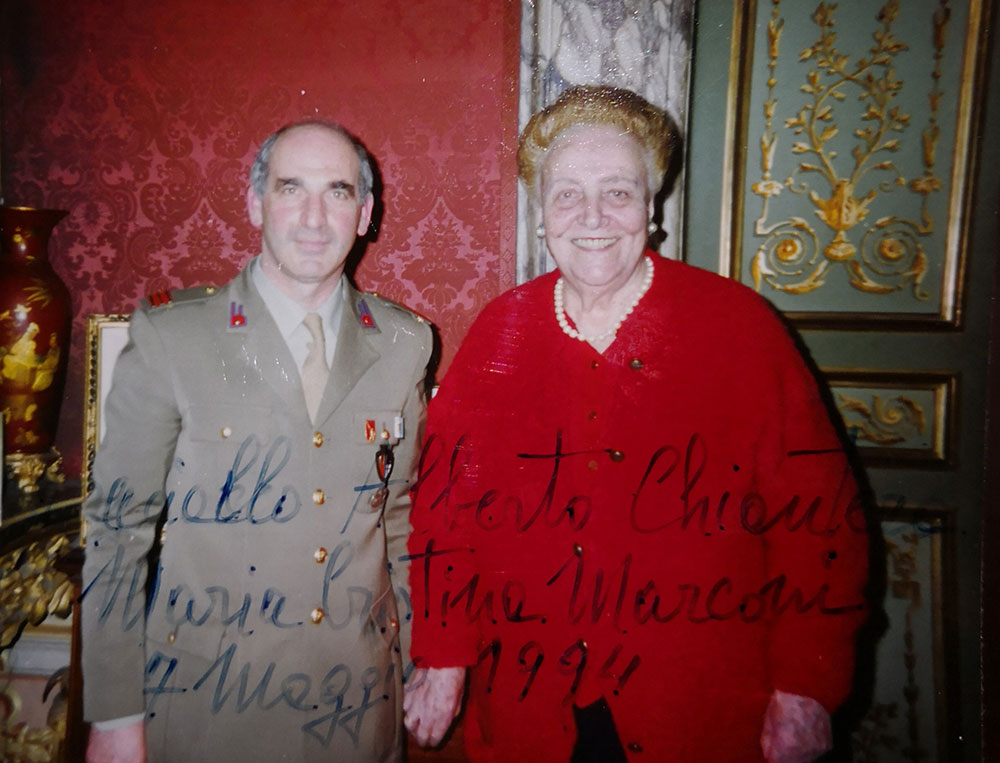 Alberto Chiantera
Maria Cristina Marconi
7 Maggio 1994